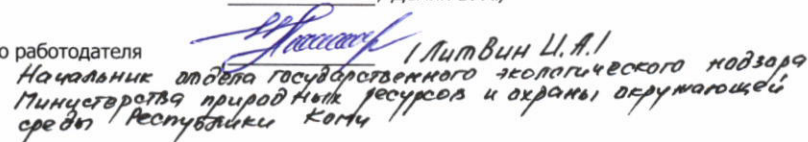 о работодателя / Литвин И.А./
Начальник отдела государственного экологического надзора
Министерства природных ресурсов и охраны окружающей
среды Республики Коми